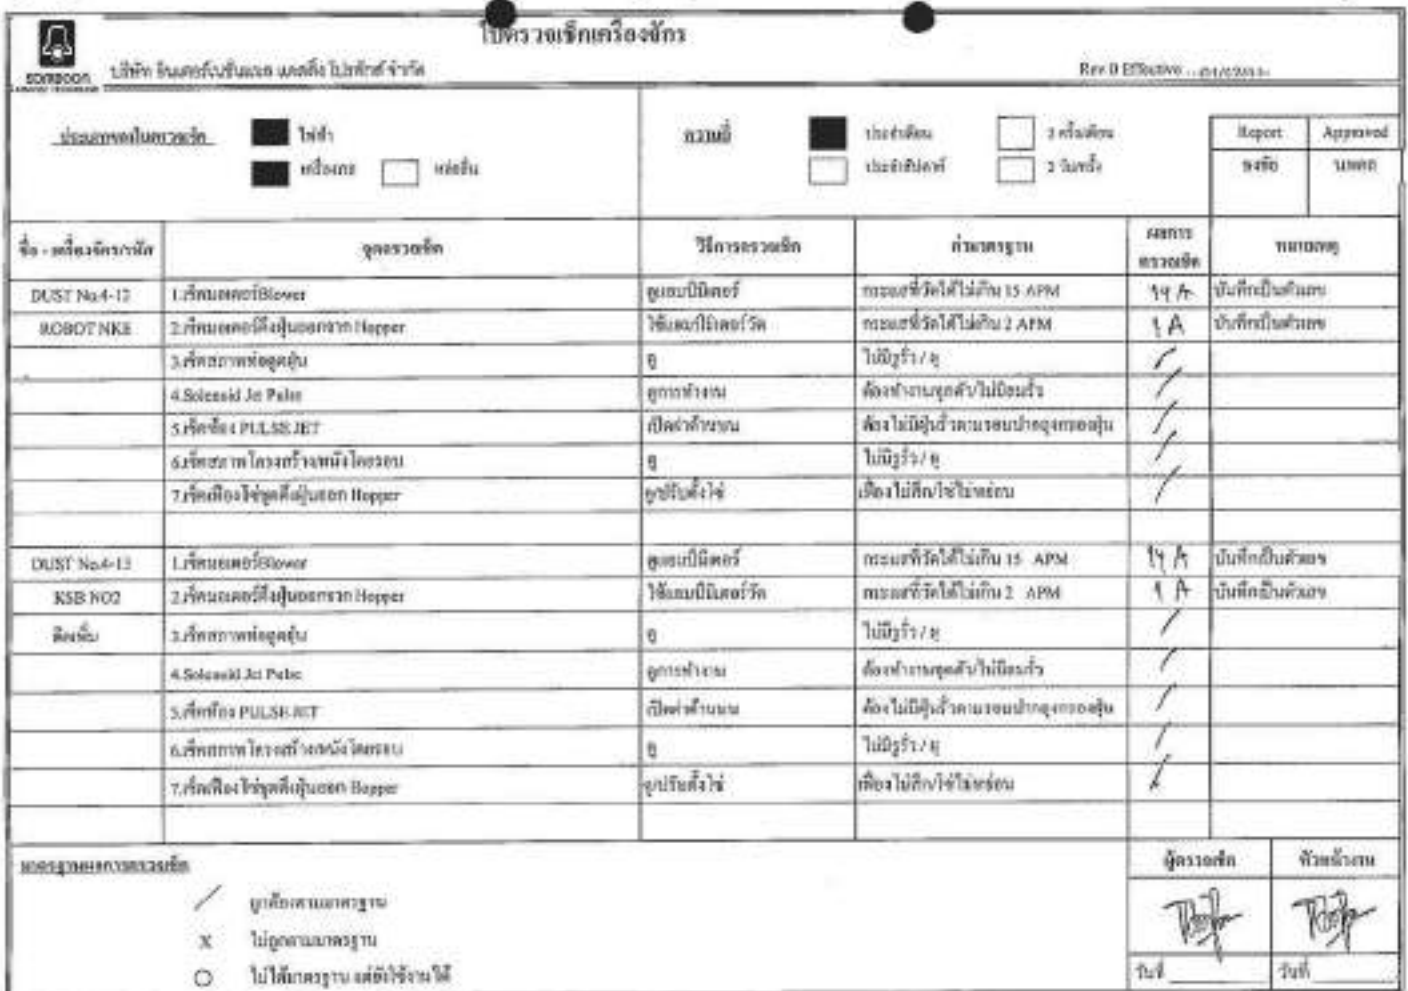 ใบตรวจเช็คเครื่องจักร
SOMBOON
บริษัท อินเตอร์เนชั่นแนล แคสติ้ง โปรดักส์ จำกัด
Rev 0 Effective
ประเภทของใบตรวจเช็ค ไฟฟ้า
เครื่องกล หล่อลื่น
ความถี่ ประจำเดือน 2 ครั้ง/เดือน
ประจำสัปดาห์ 2 วัน/ครั้ง
Report Approved
ธงชัย นพดล
ชื่อ - เครื่องจักร/รหัส จุดตรวจเช็ค วิธีการตรวจเช็ค ค่ามาตรฐาน ผลการตรวจเช็ค หมายเหตุ
DUST No.4-12 1.เช็คมอเตอร์Blower ดูแอมป์มิเตอร์ กระแสที่วัดได้ไม่เกิน 15 APM 14 A บันทึกเป็นตัวเลข
ROBOT NKE 2.เช็คมอเตอร์ดึงฝุ่นออกจาก Hopper ใช้แอมป์มิเตอร์วัด กระแสที่วัดได้ไม่เกิน 2 APM 1 A บันทึกเป็นตัวเลข
3.เช็คสภาพท่อดูดฝุ่น ดู ไม่มีรูรั่ว / ผุ /
4.Solenoid Jet Pulse ดูการทำงาน ต้องทำงานทุกตัว/ไม่มีลมรั่ว /
5.เช็คห้อง PULSE JET เปิดฝาด้านบน ต้องไม่มีฝุ่นรั่วตามรอบปากถุงกรองฝุ่น /
6.เช็คสภาพโครงสร้าง/ผนังโดยรอบ ดู ไม่มีรูรั่ว / ผุ /
7.เช็คเฟืองโซ่ชุดดึงฝุ่นออก Hopper ดู/ปรับตั้งโซ่ เฟืองไม่สึก/โซ่ไม่หย่อน /
DUST No.4-13 1.เช็คมอเตอร์Blower ดูแอมป์มิเตอร์ กระแสที่วัดได้ไม่เกิน 15 APM 14 A บันทึกเป็นตัวเลข
KSB NO2 2.เช็คมอเตอร์ดึงฝุ่นออกจาก Hopper ใช้แอมป์มิเตอร์วัด กระแสที่วัดได้ไม่เกิน 2 APM 1 A บันทึกเป็นตัวเลข
3.เช็คสภาพท่อดูดฝุ่น ดู ไม่มีรูรั่ว / ผุ /
4.Solenoid Jet Pulse ดูการทำงาน ต้องทำงานทุกตัว/ไม่มีลมรั่ว /
5.เช็คห้อง PULSE JET เปิดฝาด้านบน ต้องไม่มีฝุ่นรั่วตามรอบปากถุงกรองฝุ่น /
6.เช็คสภาพโครงสร้าง/ผนังโดยรอบ ดู ไม่มีรูรั่ว / ผุ /
7.เช็คเฟืองโซ่ชุดดึงฝุ่นออก Hopper ดู/ปรับตั้งโซ่ เฟืองไม่สึก/โซ่ไม่หย่อน /
มาตรฐานผลการตรวจเช็ค
/ ถูกต้องตามมาตรฐาน
X ไม่ถูกตามมาตรฐาน
○ ไม่ได้มาตรฐาน แต่ยังใช้งานได้
ผู้ตรวจเช็ค หัวหน้างาน
วันที่ วันที่